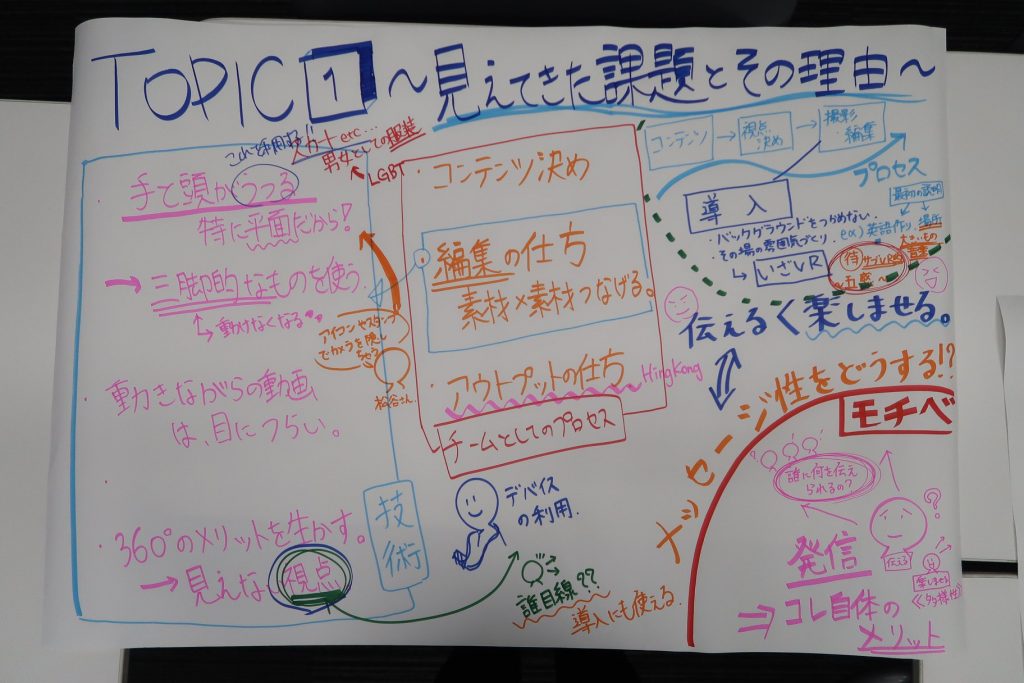 TOPIC 1 ～見えてきた課題とその理由～
スカート etc...
男女としての服装
LGBT
・手と頭がうつる
特に平面だから!
→三脚的なものを使う
動けなくなる
アイコンやスタンプ
でカメラを隠し
ちゃう
・動きながらの動画
は、目につらい。
・360°のメリットを生かす。
→見えない視点
技術
・コンテンツ決め
・編集の仕方
素材×素材つなげる。
・アウトプットの仕方
HingKong
チームとしてのプロセス
デバイス
の利用.
誰目線??
導入にも使える.
コンテンツ → 視点決め → 撮影・編集
プロセス
導入
・バックグラウンドをつかめない.
・その場の雰囲気づくり.
いざVR
最初の説明
ex)英語作り,場所
伝える く 楽しませる。
メッセージ性をどうする!?
モチベ
誰に何を伝え
られるの?
伝える
楽しませる
≪多様性≫
発信
⇒コレ自体の
メリット